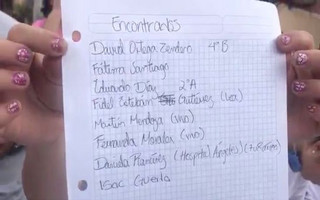 Encontrados
David Ortega Zendero 4°B
Fátima Santiago
Eduardo Díaz 2°A
Fidel Esteban Gutiérrez
Martin Mendoza (vivo)
Fernanda Morales (vivo)
Daniela Ramírez (Hospital Ángeles)
Isac Guerla